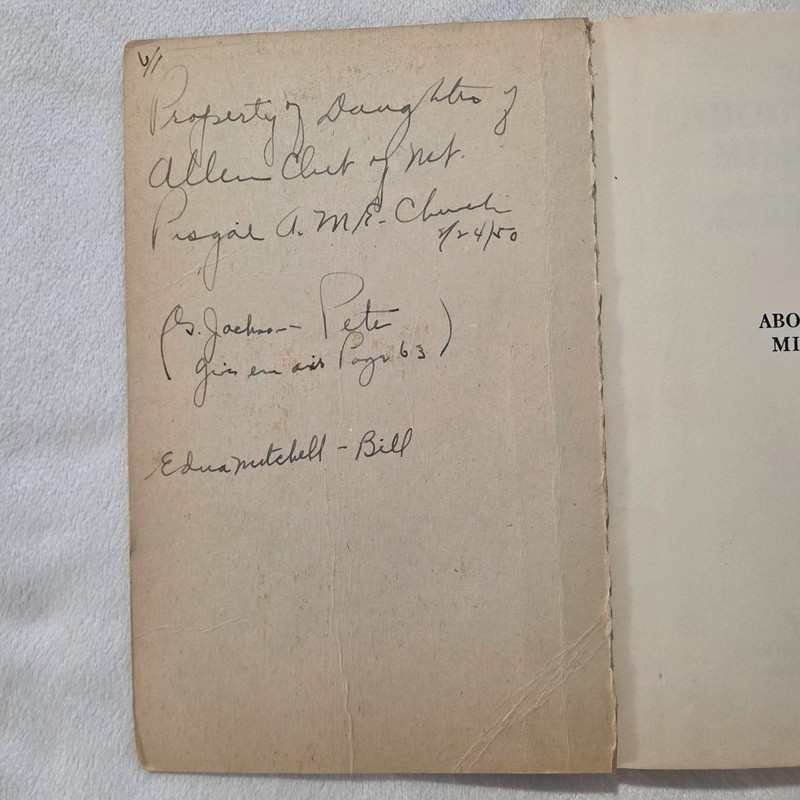 6/1
Property of Daughters of
Allen Club of Mt.
Pisgah A.M.E. Church
2/24/50
(G. Jackson - Pete
Give em air Page 63)
Edna Mitchell - Bill
ABO
MI